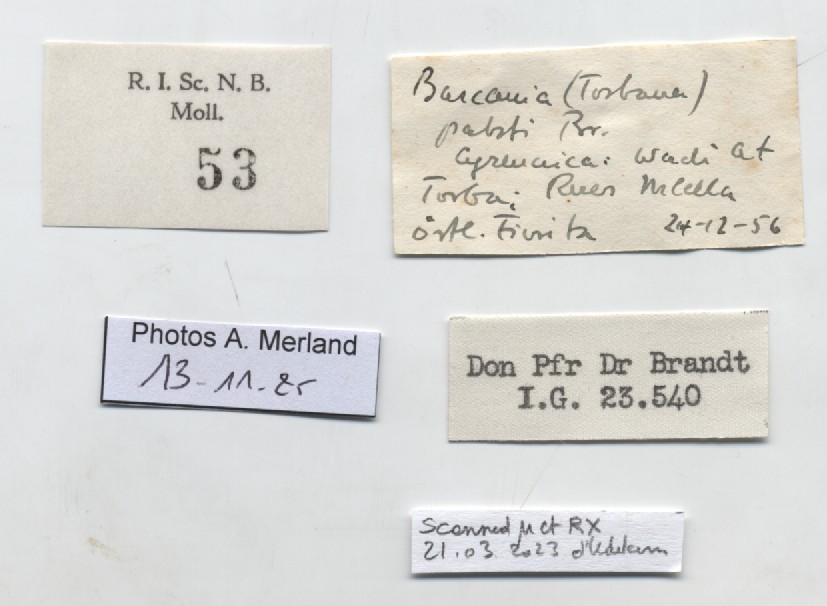 R. I. Sc. N. B.
Moll.
53
Barcania (Torbana)
pabsti Br.
Cyrenaica: Wadi at
Torba; Mlella
östl. Fiorita 24-12-56
Photos A. Merland
13-11-25
Don Pfr Dr Brandt
I.G. 23.540
Scanned µ ct RX
21.03 2023